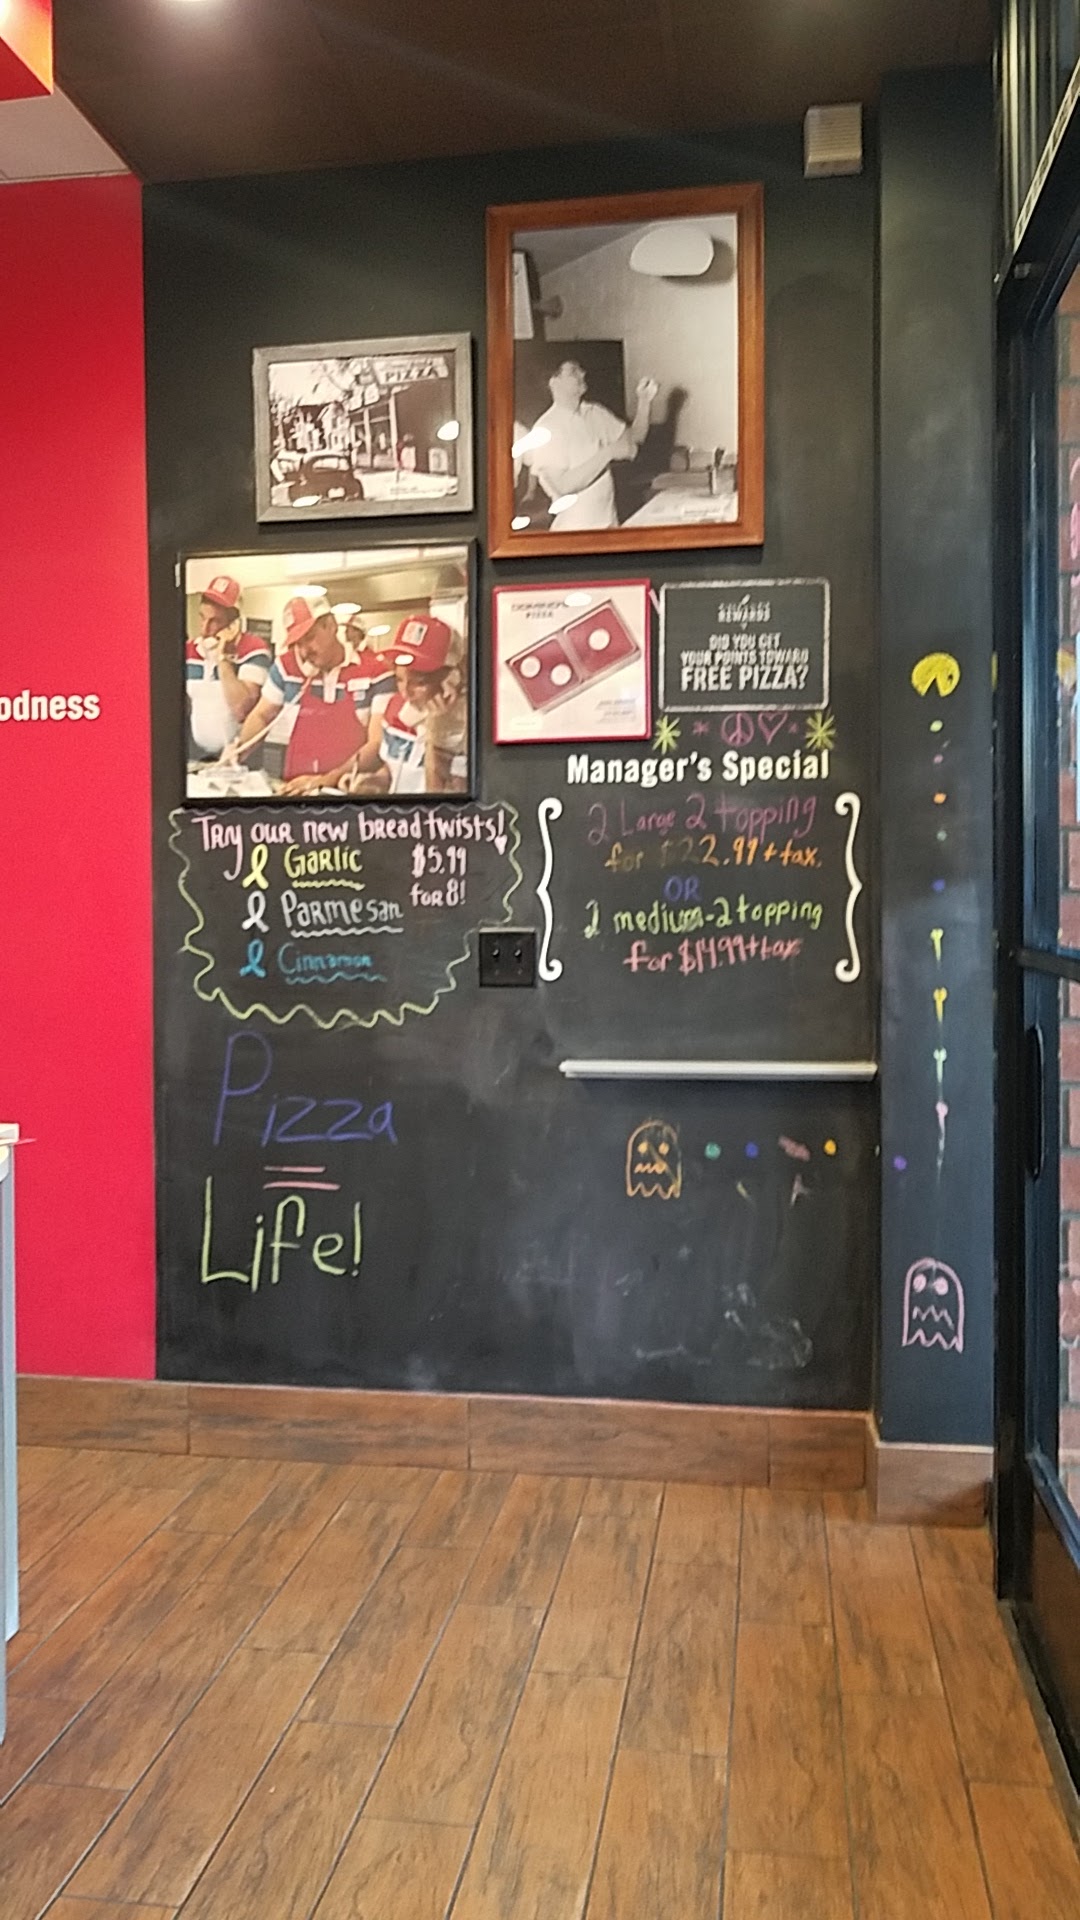 odness
PIZZA
DOMINO'S
PIZZA
REWARDS
DID YOU GET
YOUR POINTS TOWARD
FREE PIZZA?
Manager's Special
2 Large 2 topping
for $22.99 + tax.
OR
2 medium-2 topping
for $14.99 + tax
Try our new bread twists!
Garlic $5.99
Parmesan for 8!
Cinnamon
Pizza
=
Life!